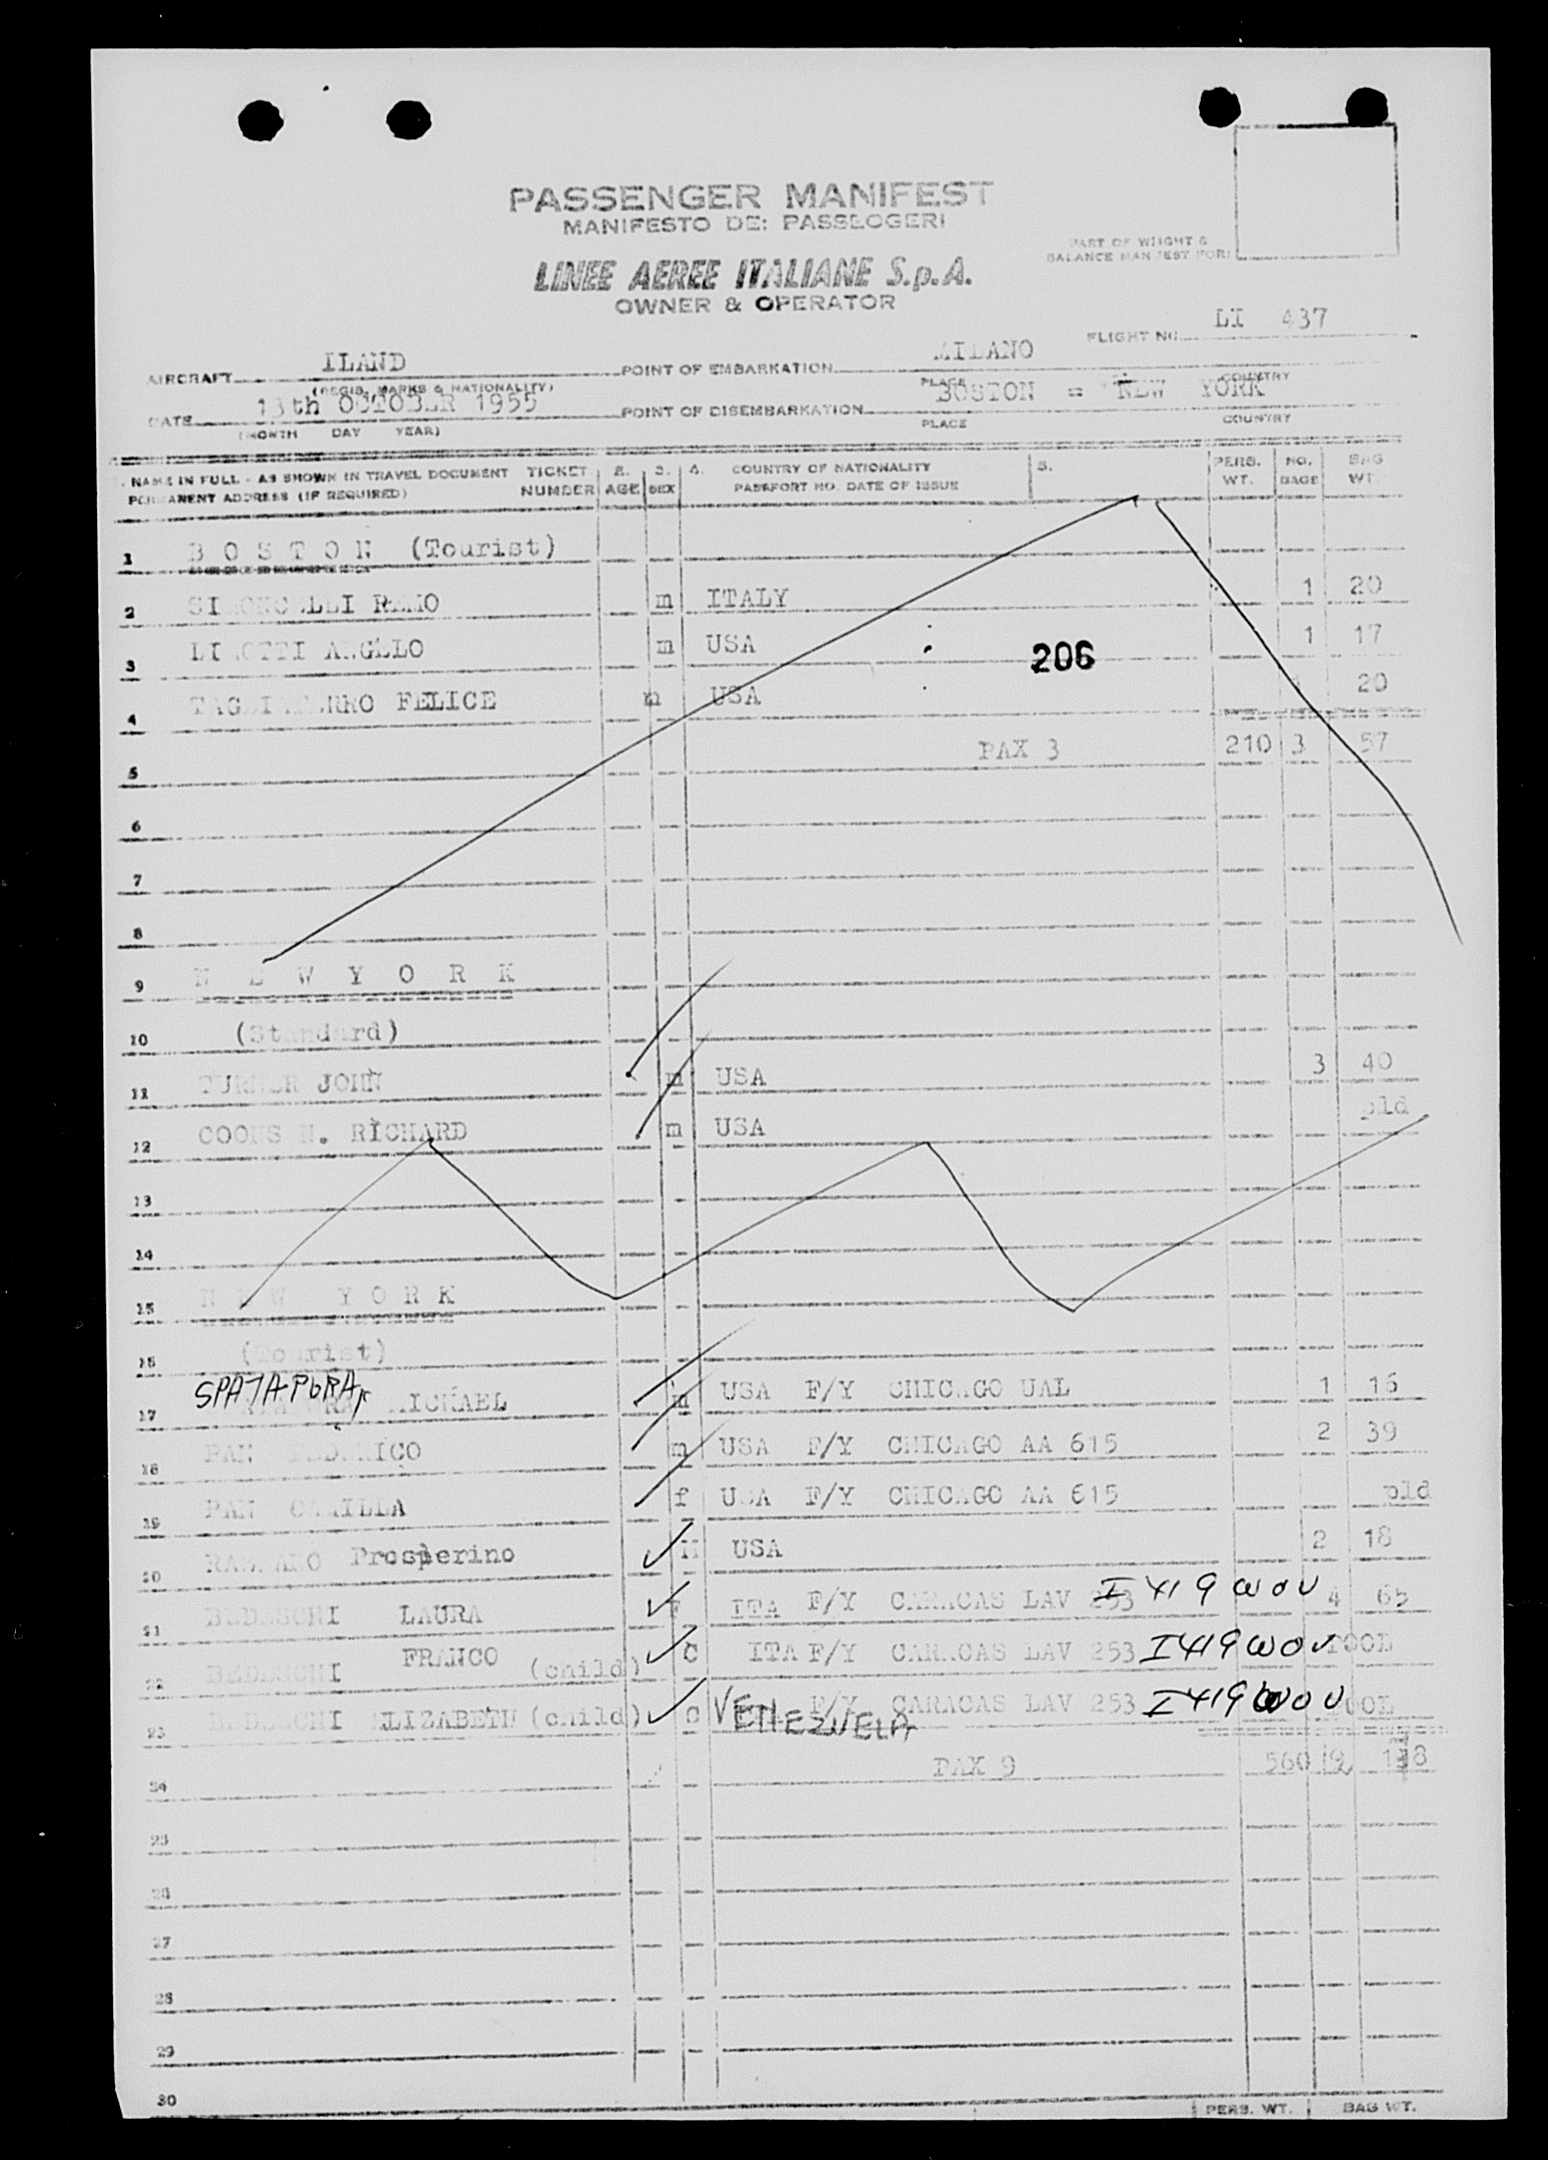 PASSENGER MANIFEST
MANIFESTO DEI PASSEGGERI
PART OF WEIGHT &
BALANCE MANIFEST FOR:
LINEE AEREE ITALIANE S.p.A.
OWNER & OPERATOR
FLIGHT NO. LI 437
AIRCRAFT ILAND POINT OF EMBARKATION MILANO
(REGIS, MARKS & NATIONALITY) PLACE COUNTRY
DATE 13th OCTOBER 1955 POINT OF DISEMBARKATION BOSTON = NEW YORK
(MONTH DAY YEAR) PLACE COUNTRY
NAME IN FULL - AS SHOWN IN TRAVEL DOCUMENT TICKET 2. 3. 4. COUNTRY OF NATIONALITY 5. PERS. NO. BAG
PERMANENT ADDRESS (IF REQUIRED) NUMBER AGE SEX PASSPORT NO. DATE OF ISSUE WT. BAGS WT.
1 B O S T O N (Tourist)
2 SIMONCELLI REMO m ITALY 1 20
3 ANGELO m USA 1 17
206
4 FELICE m USA 20
5 PAX 3 210 3 57
6
7
8
9 N E W Y O R K
10 (Standard)
11 TURNER JOHN m USA 3 40
12 RICHARD m USA pld
13
14
15 N E W Y O R K
16 (Tourist)
SPATAFORA
17 MICHAEL m USA F/Y CHICAGO UAL 1 16
18 PAN FEDERICO m USA F/Y CHICAGO AA 615 2 39
19 PAN CAMILLA f USA F/Y CHICAGO AA 615 pld
20 Prosperino M USA 2 18
21 BEDESCHI LAURA F ITA F/Y CARACAS LAV 253 I 419 WOV 4 65
22 BEDESCHI FRANCO (child) C ITA F/Y CARACAS LAV 253 I 419 WOV POOL
23 BEDESCHI ELIZABETH (child) C VENEZUELA F/Y CARACAS LAV 253 I 419 WOV POOL
24 PAX 9 560 12
25
26
27
28
29
30
PERS. WT. BAG WT.